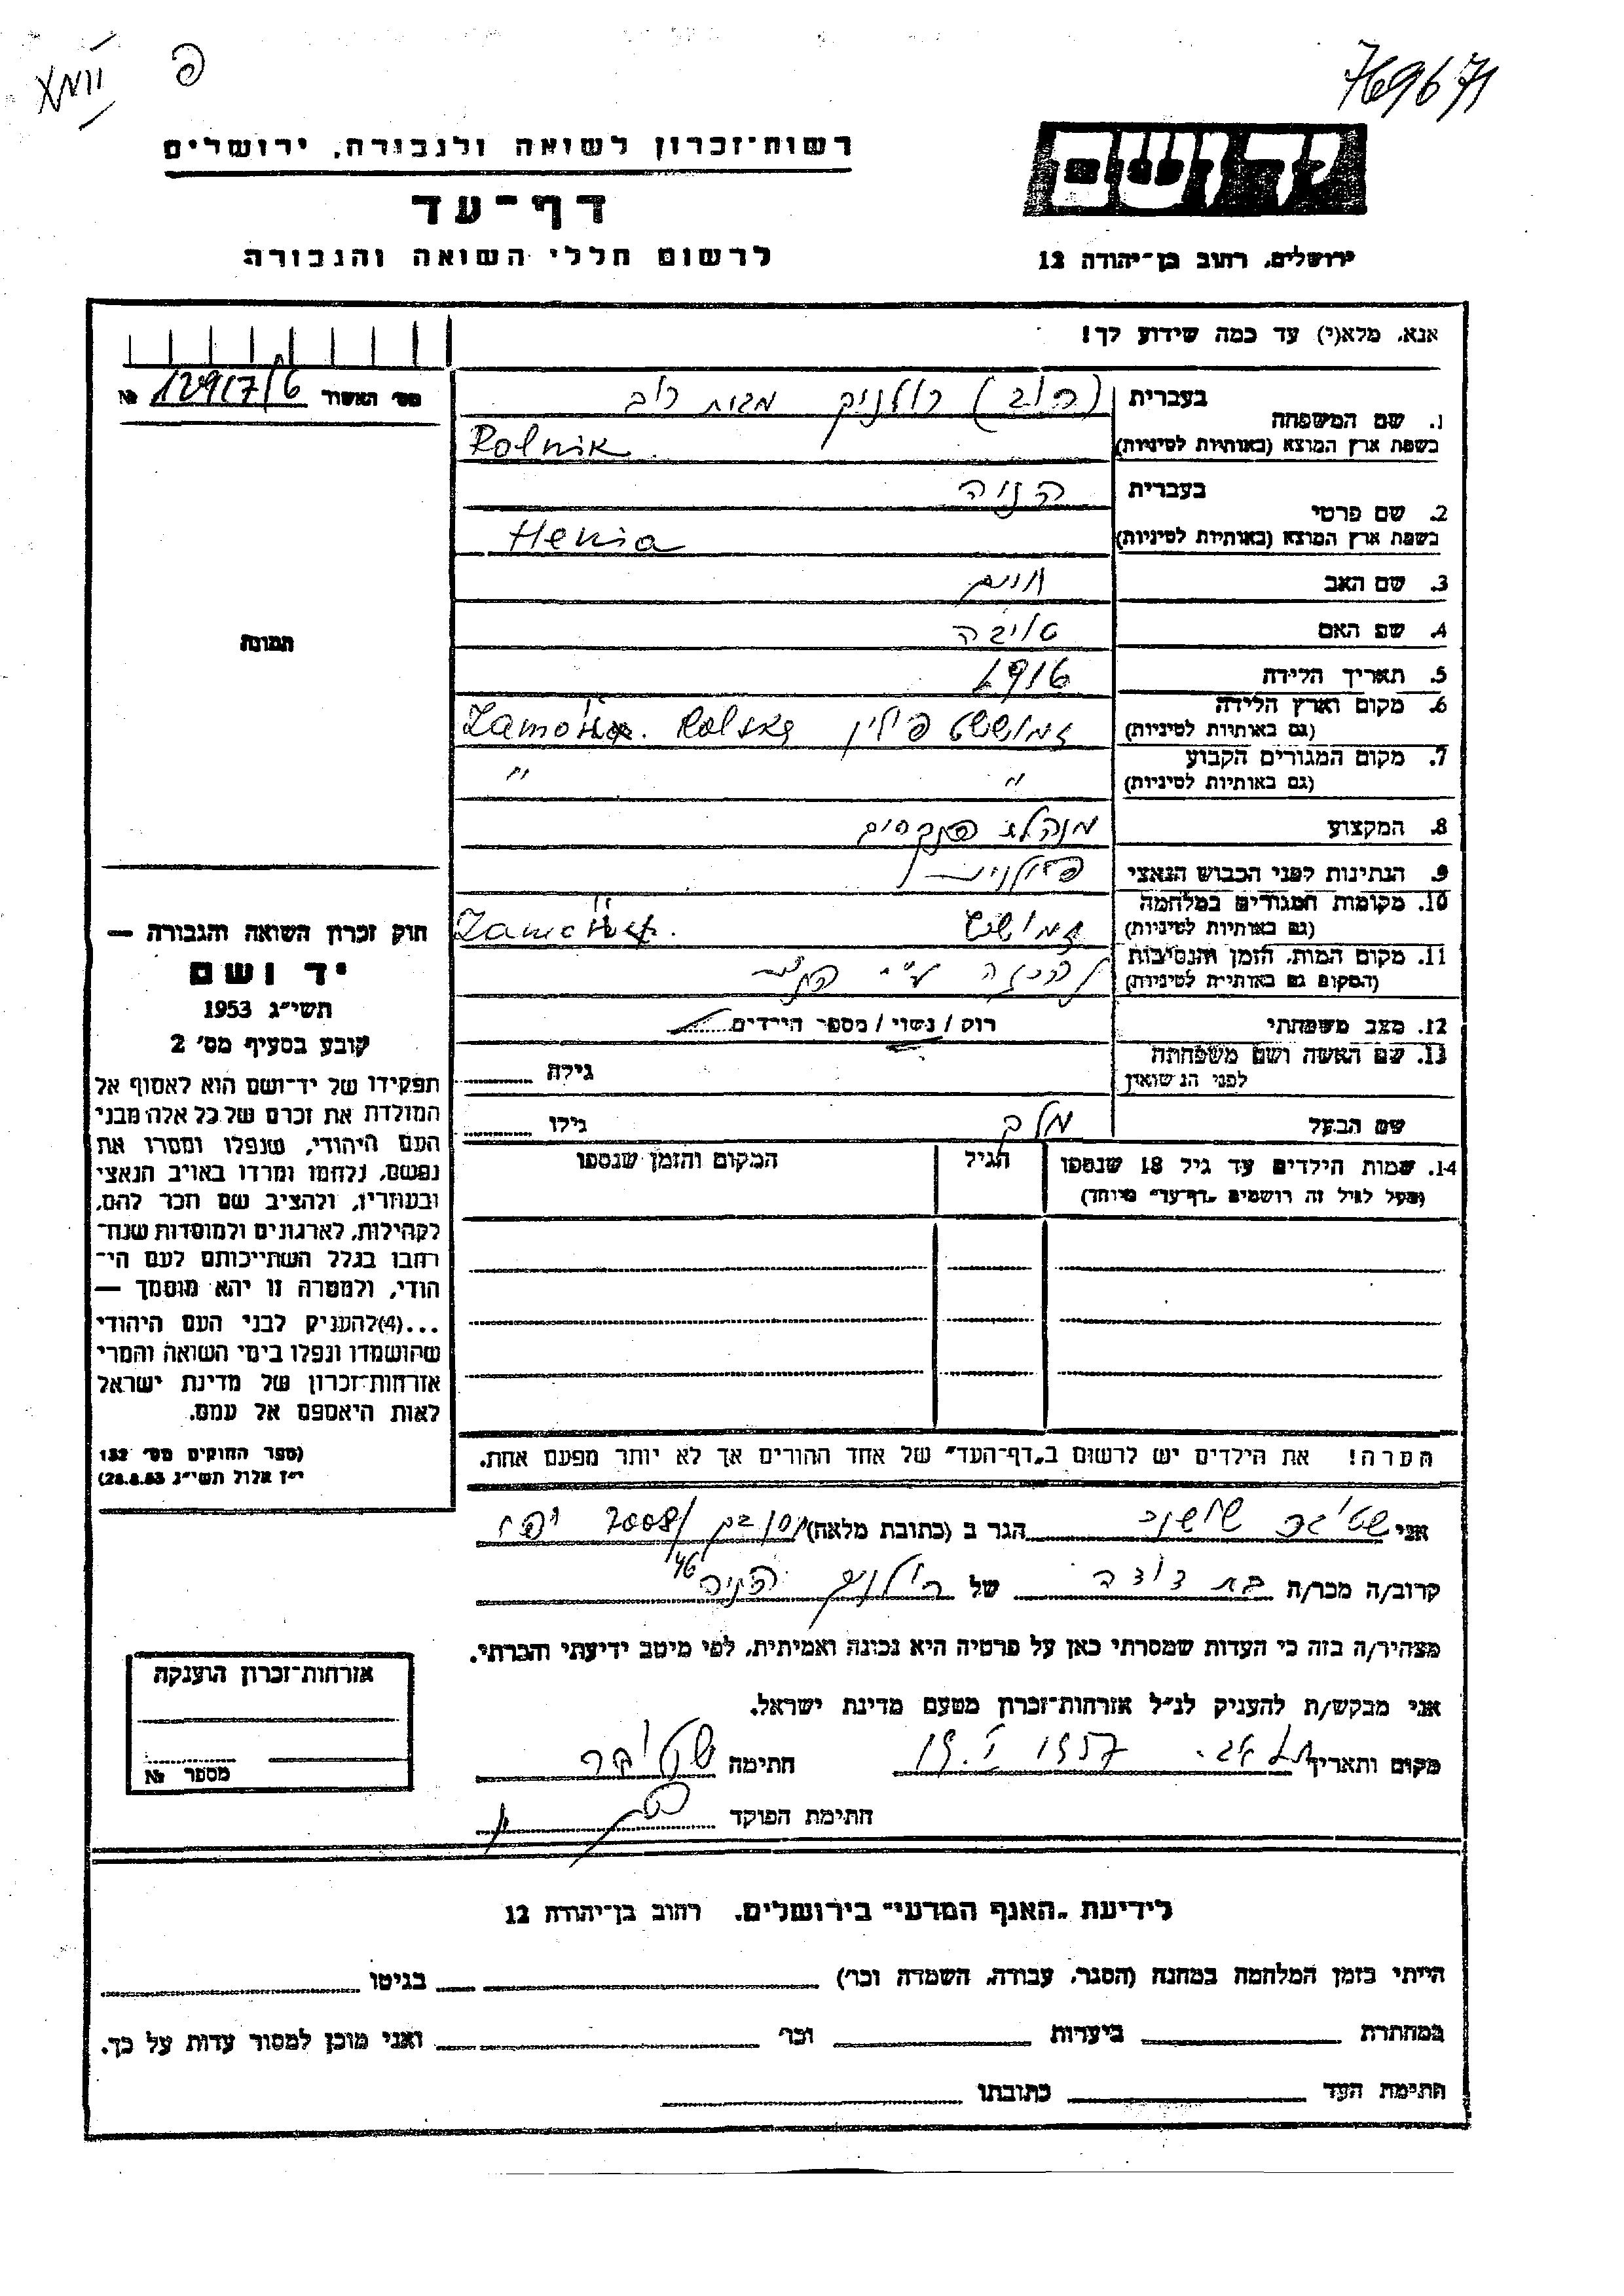 769671
פ
רשות־זכרון לשואה ולגבורה, ירושלים
דף־עד
לרשום חללי השואה והגבורה
יד ושם
ירושלים, רחוב בן־יהודה 12
אנא, מלא(י) עד כמה שידוע לך!
מס׳ האשור № 12917/6
1. שם המשפחה
בעברית רולניק מבית
בשפת ארץ המוצא (באותיות לטיניות) Rolnik
2. שם פרטי
בעברית הניה
בשפת ארץ המוצא (באותיות לטיניות) Henia
3. שם האב חיים
4. שם האם טויבה
5. תאריך הלידה 1916
6. מקום וארץ הלידה
(גם באותיות לטיניות) זמושטש פולין Polska
7. מקום המגורים הקבוע
(גם באותיות לטיניות) " "
8. המקצוע מנהלת פנקסים
9. הנתינות לפני הכבוש הנאצי פולנית
10. מקומות המגורים במלחמה
(גם באותיות לטיניות)
11. מקום המות, הזמן והנסיבות
(המקום גם באותיות לטיניות) נהרגה ע״י
12. מצב משפחתי רוק / נשוי / מספר הילדים
13. שם האשה ושם משפחתה
לפני הנשואין
גילה
שם הבעל
גילו
תמונה
14. שמות הילדים עד גיל 18 שנספו
(מעל לגיל זה רושמים „דף־עד״ מיוחד)
הגיל
המקום והזמן שנספו
חוק זכרון השואה והגבורה —
יד ושם
תשי״ג 1953
קובע בסעיף מס׳ 2
תפקידו של יד־ושם הוא לאסוף אל
המולדת את זכרם של כל אלה מבני
העם היהודי, שנפלו ומסרו את
נפשם, נלחמו ומרדו באויב הנאצי
ובעוזריו, ולהציב שם וזכר להם,
לקהילות, לארגונים ולמוסדות שנח־
רבו בגלל השתייכותם לעם הי־
הודי, ולמטרה זו יהא מוסמך —
...(4)להעניק לבני העם היהודי
שהושמדו ונפלו בימי השואה והמרי
אזרחות־זכרון של מדינת ישראל
לאות היאספם אל עמם.
(ספר החוקים מס׳ 132
י״ז אלול תשי״ג 28.8.53)
הערה! את הילדים יש לרשום ב„דף־העד״ של אחד ההורים אך לא יותר מפעם אחת.
אני
הגר ב (כתובת מלאה) יפו
קרוב/ה מכר/ה בת דודה של רולניק הניה
מצהיר/ה בזה כי העדות שמסרתי כאן על פרטיה היא נכונה ואמיתית, לפי מיטב ידיעתי והכרתי.
אני מבקש/ת להעניק לנ״ל אזרחות־זכרון מטעם מדינת ישראל.
מקום ותאריך 1957
חתימה
חתימת הפוקד
אזרחות־זכרון הוענקה
מספר №
לידיעת „האגף המדעי״ בירושלים, רחוב בן־יהודה 12
הייתי בזמן המלחמה במחנה (הסגר, עבודה, השמדה וכו׳) בגיטו
במחתרת ביערות וכו׳ ואני מוכן למסור עדות על כך.
חתימת העד כתובתו